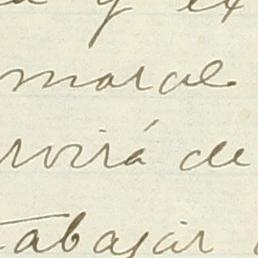 y ex
moral
rvirá de
tabajar